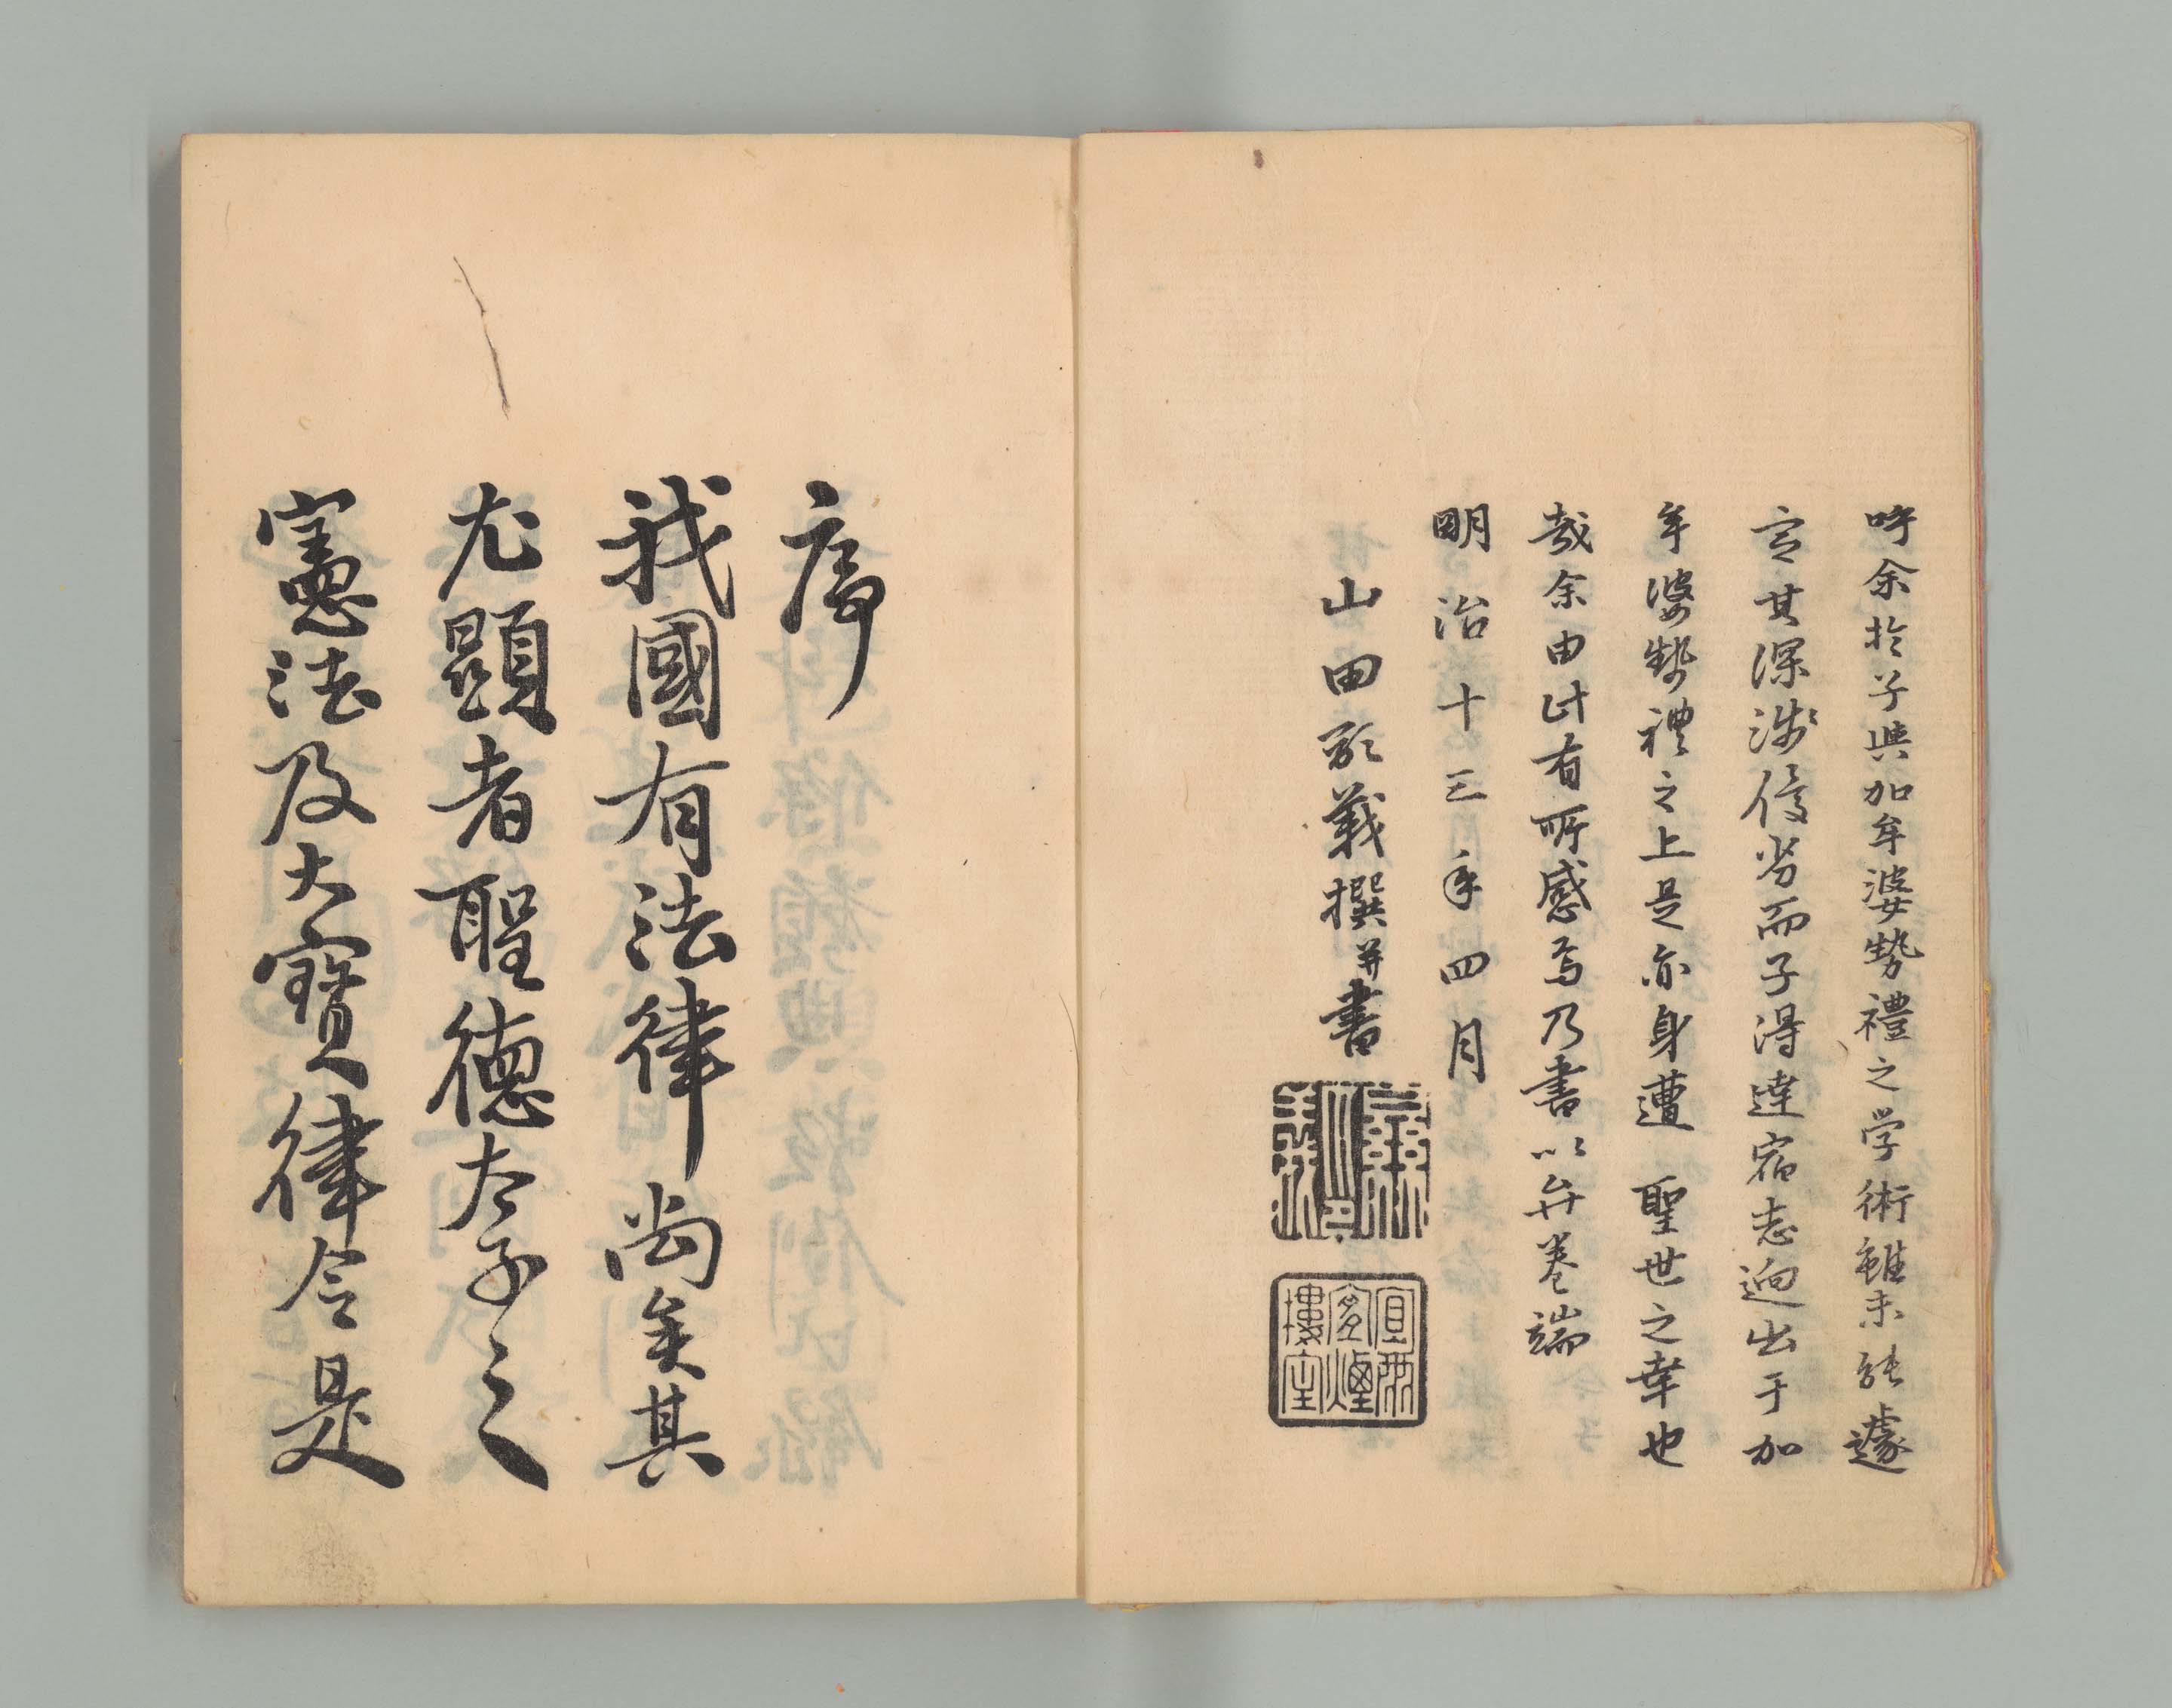 呼余於子與加牟婆勢禮之学術雖未能遽
言其深渉優劣而子得達宿志迥出于加
牟婆勢禮之上是亦身遭 聖世之幸也
哉余由此有所感焉乃書以弁巻端
明治十三年四月
山田顕義撰并書
序
我國有法律尚矣其
尤顕者聖徳太子之
憲法及大寶律令是